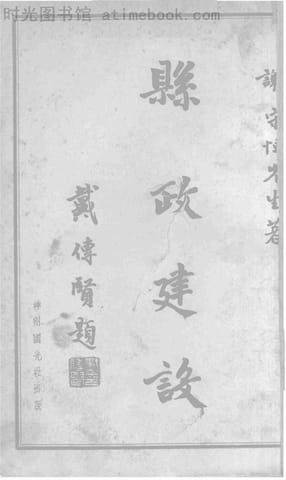 时光图书馆 · atimebook.com
謝守恆先生著
縣政建設
戴傳賢題
神州國光社出版